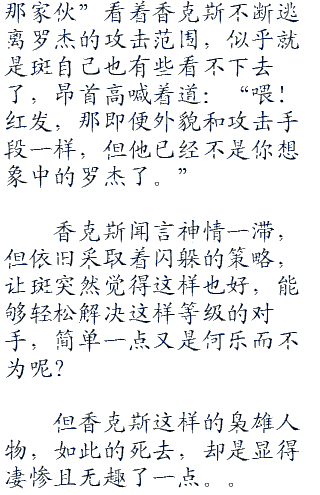 那家伙”看着香克斯不断逃
离罗杰的攻击范围，似乎就
是斑自己也有些看不下去
了，昂首高喊着道：“喂！
红发，那即便外貌和攻击手
段一样，但他已经不是你想
象中的罗杰了。”
香克斯闻言神情一滞，
但依旧采取着闪躲的策略，
让斑突然觉得这样也好，能
够轻松解决这样等级的对
手，简单一点又是何乐而不
为呢？
但香克斯这样的枭雄人
物，如此的死去，却是显得
凄惨且无趣了一点。。